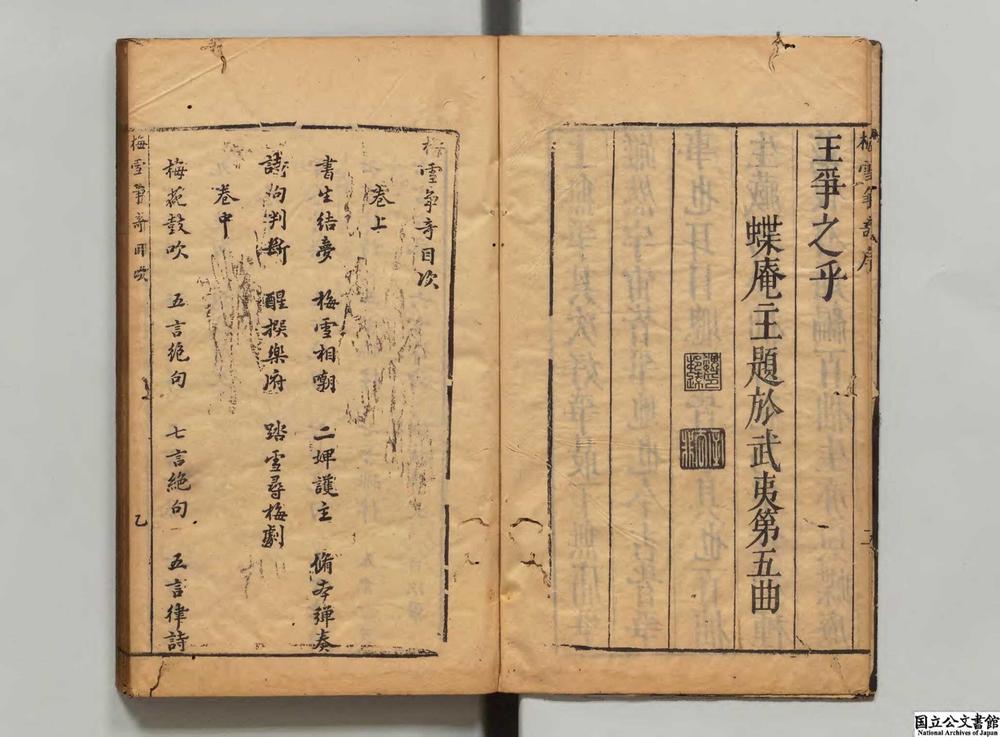 梅雪爭奇序
王爭之乎
蝶庵主題於武夷第五曲
二
梅雪爭奇目次
卷上
書生結夢 梅雪相嘲 二婢護主 脩本彈奏
詩詢判斷 醒撰樂府 踏雪尋梅劇
卷中
梅花鼓吹 五言絕句 七言絕句 五言律詩
梅雪爭奇目次
乙
国立公文書館
National Archives of Japan